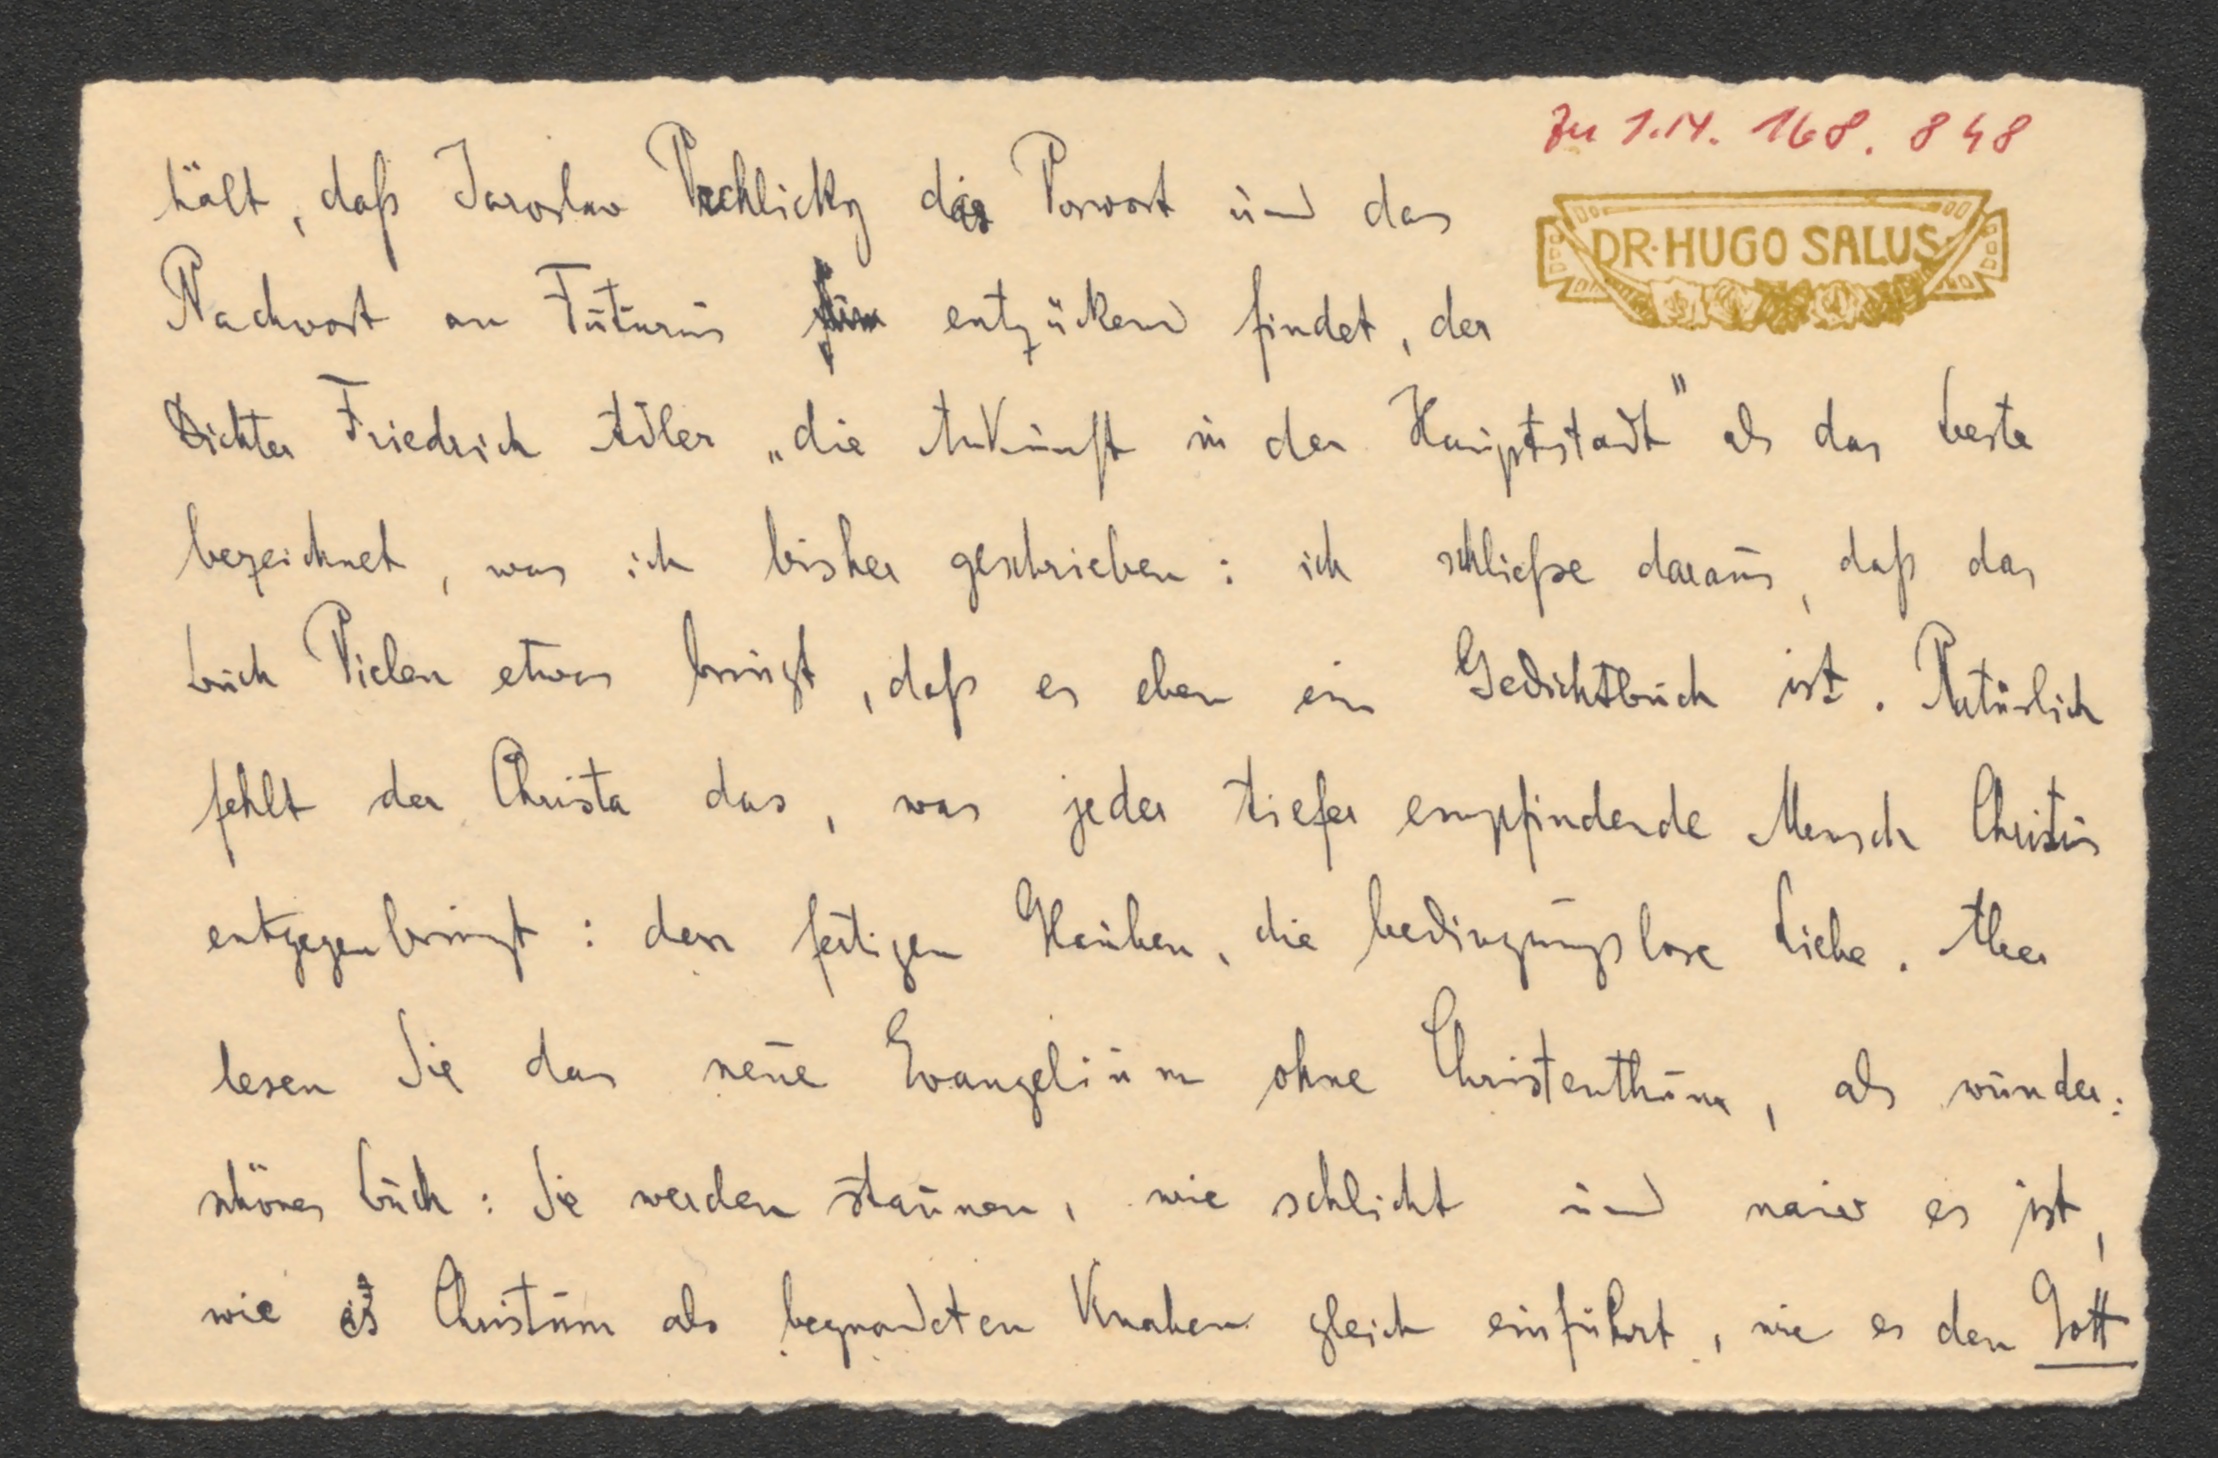 Zu I.N. 168.848
DR. HUGO SALUS
hält, daß Jaroslav Vrchlicky das Vorwort und das
Nachwort an Futurus entzückend findet, der
Dichter Friedrich Adler „die Ankunft in der Hauptstadt" als das beste
bezeichnet, was ich bisher geschrieben: ich schließe daraus, daß das
Buch Vielen etwas bringt, daß es eben ein Gedichtbuch ist. Natürlich
fehlt der Christa das, was jeder tiefer empfindende Mensch Christus
entgegenbringt: den fertigen Glauben, die bedingungslose Liebe. Aber
lesen Sie das neue Evangelium ohne Christenthum, als wunder:
schönes Buch: Sie werden staunen, wie schlicht und naiv es ist,
wie es Christum als begnadeten Knaben gleich einführt, wie es den Gott